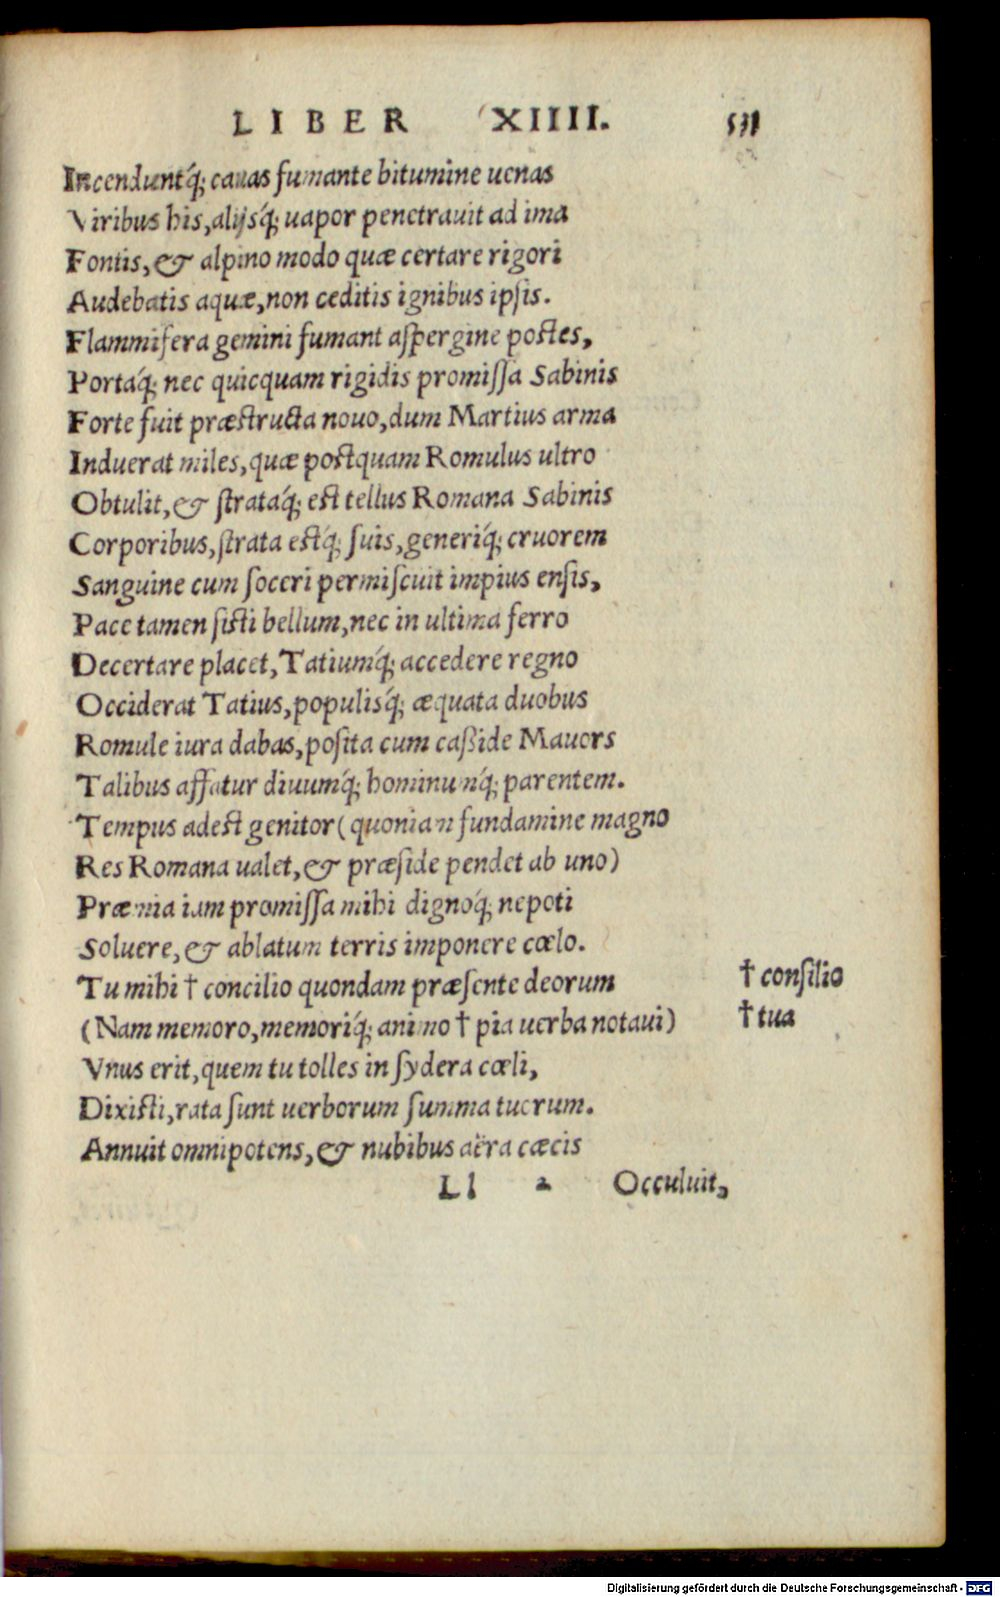 LIBER XIIII. 531
Incenduntq́; cauas fumante bitumine uenas
Viribus his, alijsq́; uapor penetrauit ad ima
Fontis, & alpino modo quæ certare rigori
Audebatis aquæ, non ceditis ignibus ipsis.
Flammifera gemini fumant aſpergine poſtes,
Portaq́; nec quicquam rigidis promiſſa Sabinis
Forte fuit præſtructa nouo, dum Martius arma
Induerat miles, quæ poſtquam Romulus ultro
Obtulit, & ſtrataq́; eſt tellus Romana Sabinis
Corporibus, ſtrata eſtq́; ſuis, generiq́; cruorem
Sanguine cum ſoceri permiſcuit impius enſis,
Pace tamen ſiſti bellum, nec in ultima ferro
Decertare placet, Tatiumq́; accedere regno
Occiderat Tatius, populisq́; æquata duobus
Romule iura dabas, poſita cum caßide Mauors
Talibus affatur diuumq́; hominumq́; parentem.
Tempus adeſt genitor (quoniam fundamine magno
Res Romana ualet, & præſide pendet ab uno)
Præmia iam promiſſa mihi dignoq́; nepoti
Soluere, & ablatum terris imponere cœlo.
Tu mihi † concilio quondam præſente deorum † conſilio
(Nam memoro, memoriq́; animo † pia uerba notaui) † tua
Vnus erit, quem tu tolles in ſydera cœli,
Dixiſti, rata ſunt uerborum ſumma tuorum.
Annuit omnipotens, & nubibus aëra cæcis
Ll 2 Occuluit,
Digitalisierung gefördert durch die Deutsche Forschungsgemeinschaft - DFG